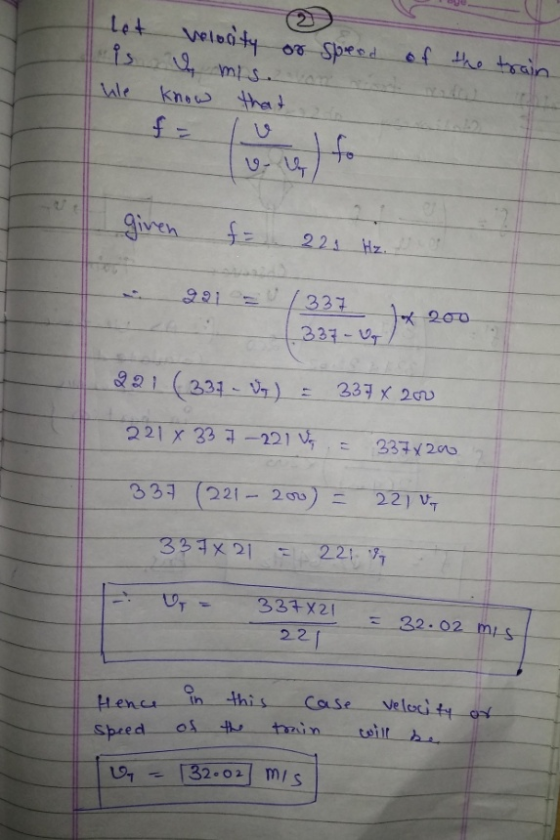 2
Let velocity or speed of the train
is v_T m/s.
We know that
f = (v / (v - v_T)) f₀
given f = 221 Hz.
∴ 221 = (337 / (337 - v_T)) × 200
221 (337 - v_T) = 337 × 200
221 × 337 - 221 v_T = 337 × 200
337 (221 - 200) = 221 v_T
337 × 21 = 221 v_T
∴ v_T = 337×21 / 221 = 32.02 m/s
Hence in this case velocity or
speed of the train will be
v_T = 32.02 m/s